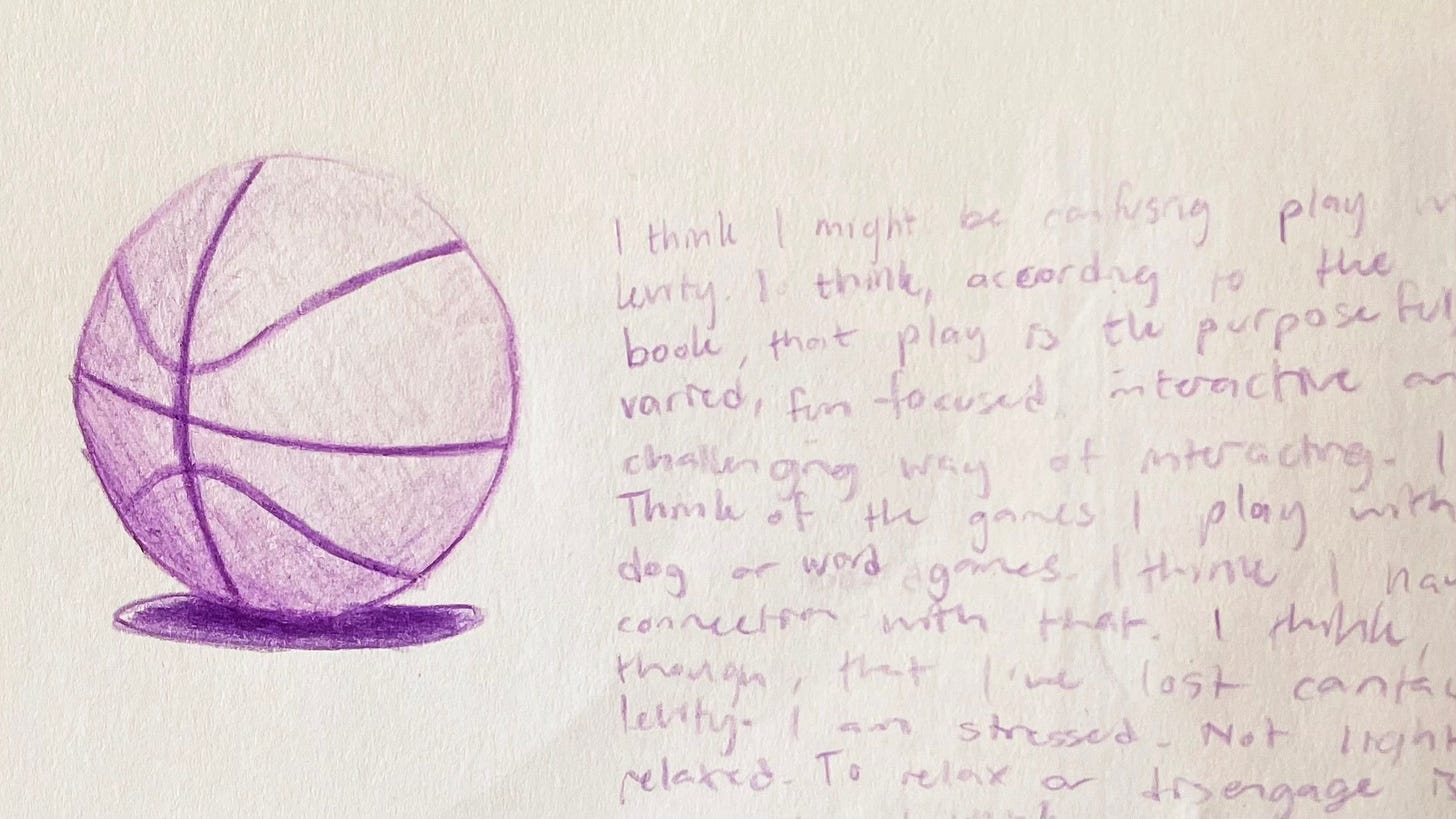 I think I might be confusing play
levity. I think, according to the
book, that play is the purposeful
varied, fun-focused, interactive
challenging way of interacting. I
Think of the games I play with
dog or word games. I think I
connection with that. I think,
though, that I've lost
levity. I am stressed. Not
relaxed. To relax or disengage is